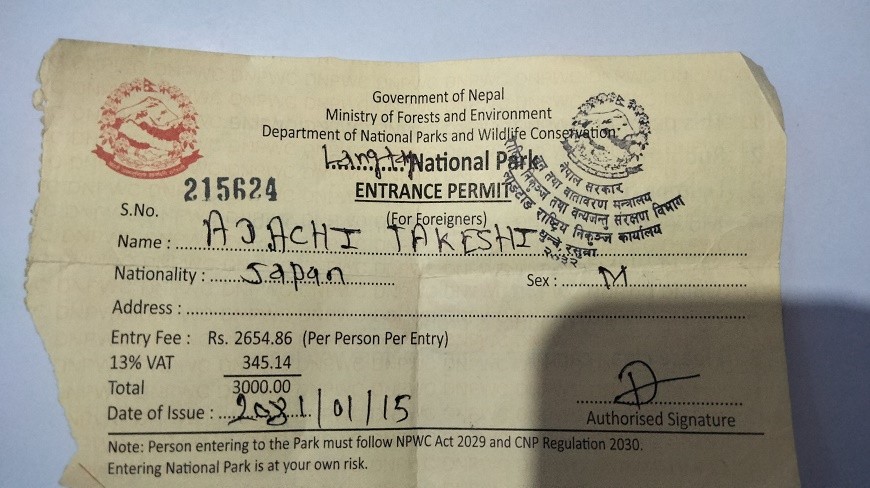 Government of Nepal
Ministry of Forests and Environment
Department of National Parks and Wildlife Conservation
Langtang National Park
ENTRANCE PERMIT
(For Foreigners)
215624
S.No.
Name : ADACHI TAKESHI
Nationality : Japan Sex : M
Address :
Entry Fee : Rs. 2654.86 (Per Person Per Entry)
13% VAT 345.14
Total 3000.00
Date of Issue : 2081/01/15
Authorised Signature
Note: Person entering to the Park must follow NPWC Act 2029 and CNP Regulation 2030.
Entering National Park is at your own risk.
नेपाल सरकार
वन तथा वातावरण मन्त्रालय
राष्ट्रिय निकुञ्ज तथा वन्यजन्तु संरक्षण विभाग
लाङटाङ राष्ट्रिय निकुञ्ज कार्यालय
धुन्चे, रसुवा
२०३२